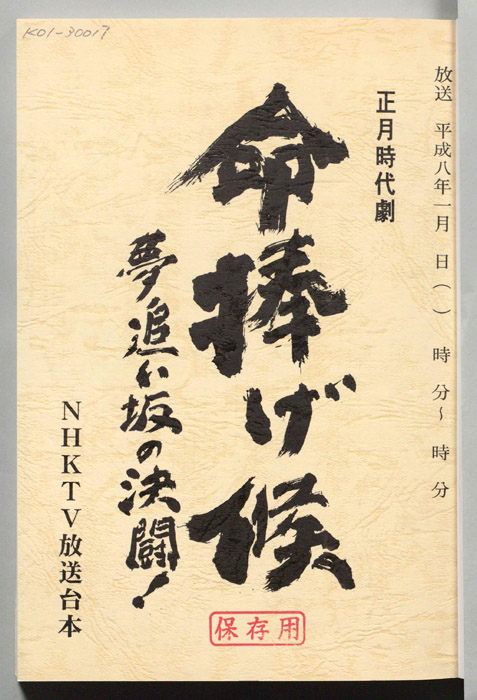 K01-30017
放送 平成八年一月 日（ ） 時 分～ 時 分
正月時代劇
命捧げ候
夢追い坂の決闘！
NHKTV放送台本
保存用